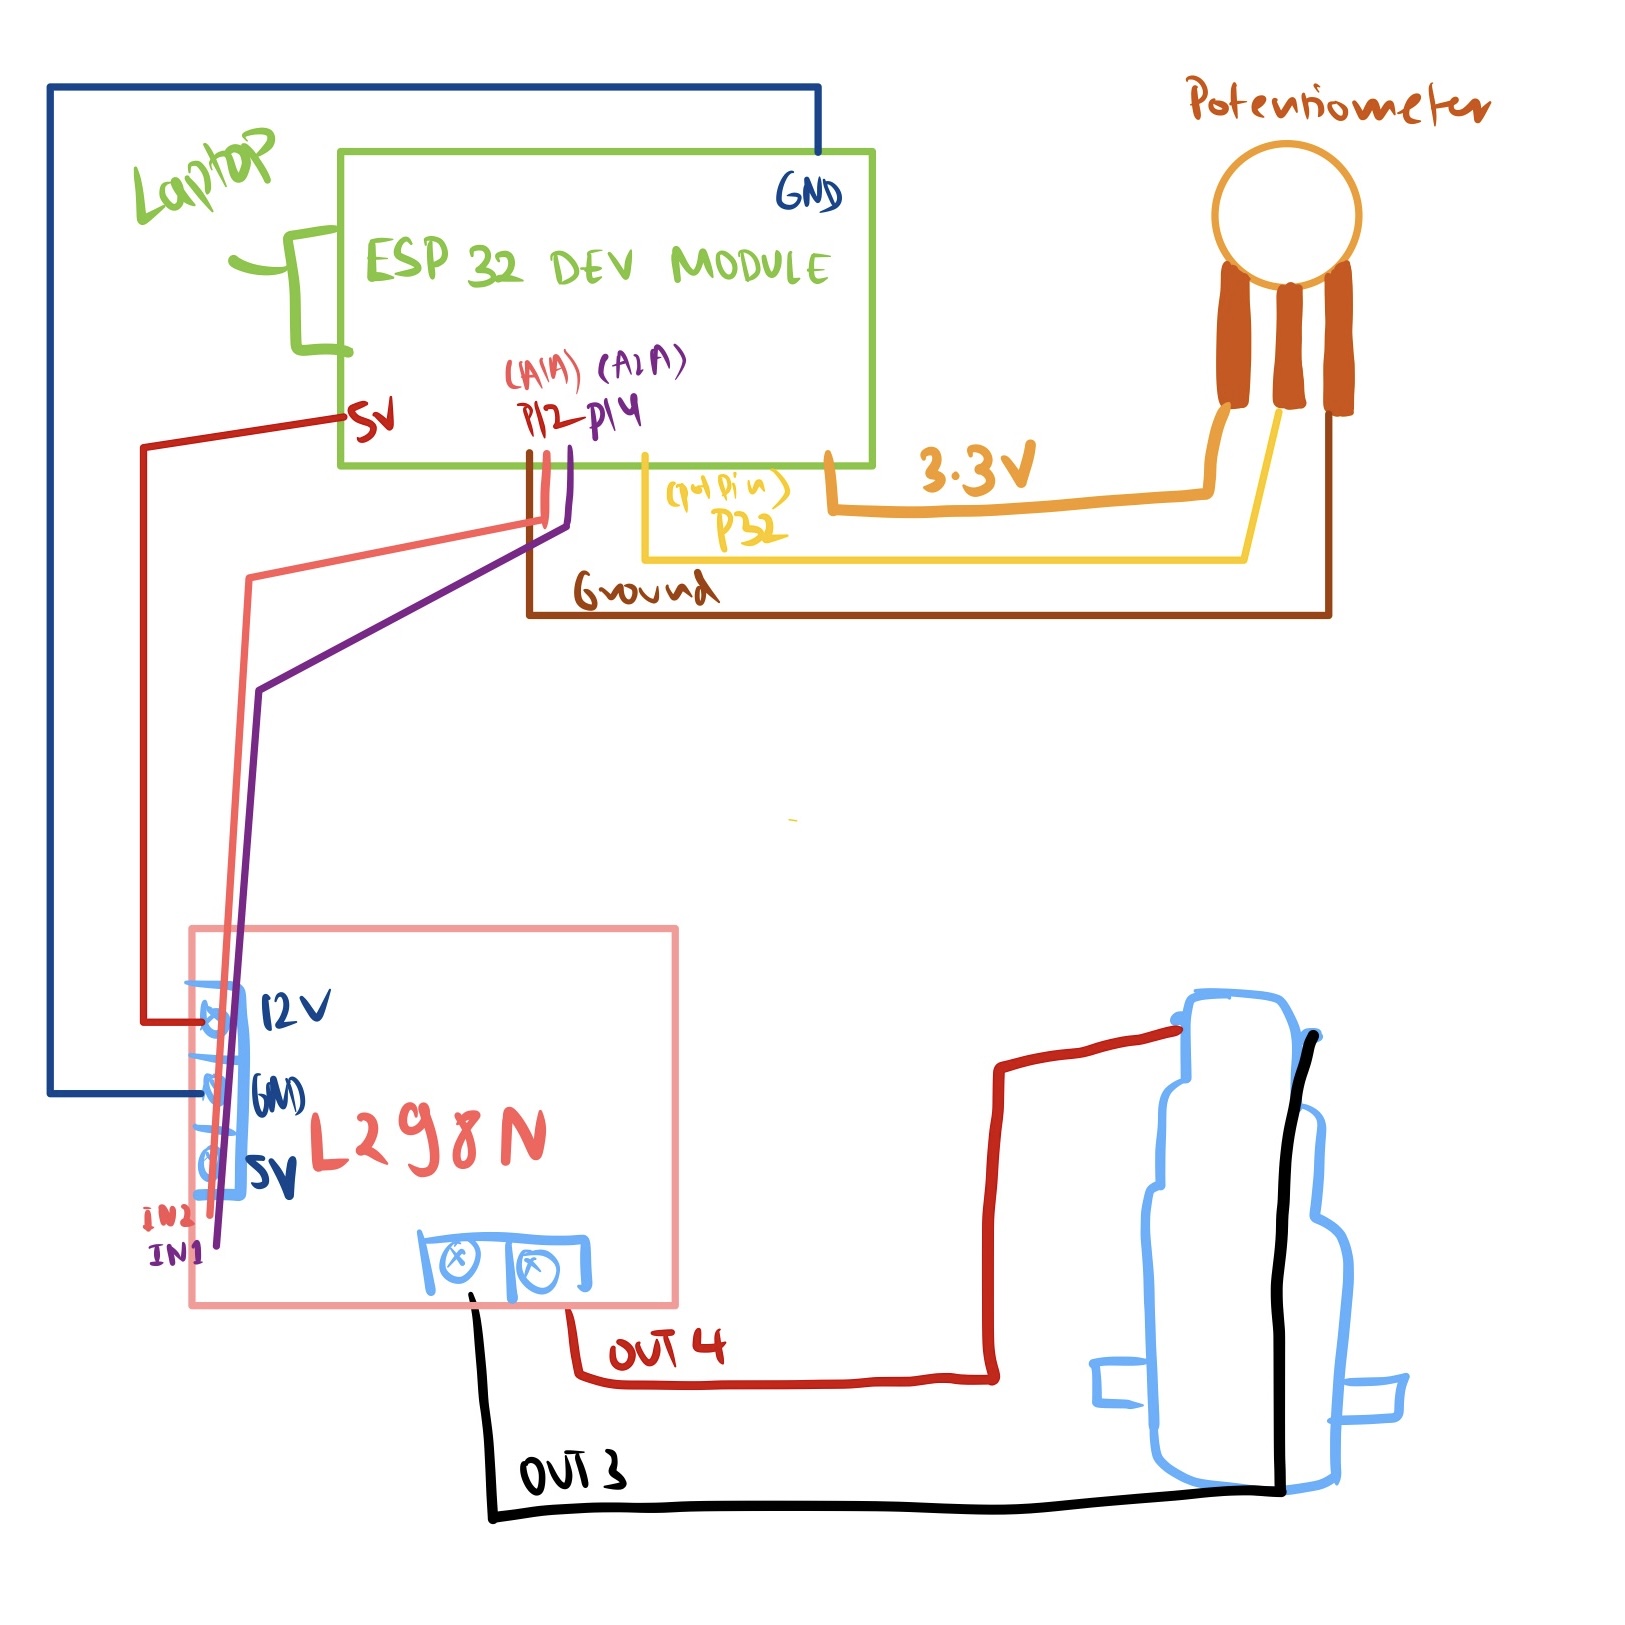 Potentiometer
Laptop
GND
ESP 32 DEV MODULE
(A1A) (A2A)
5V
P12 P14
3.3V
(pot pin)
P32
Ground
12V
GND
L298N
5V
IN2
IN1
OUT 4
OUT 3